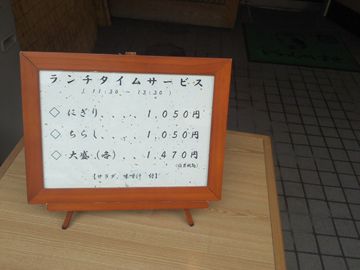 ランチタイムサービス
◇ にぎり.... 1,050円
◇ ちらし.... 1,050円
◇ 大盛(各).. 1,470円
【サラダ、味噌汁 付】